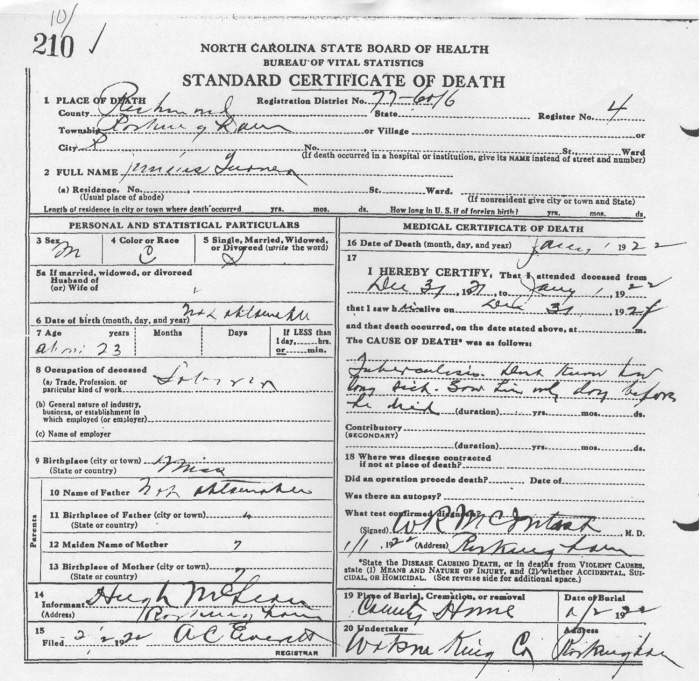 10/
210 ✓
NORTH CAROLINA STATE BOARD OF HEALTH
BUREAU OF VITAL STATISTICS
STANDARD CERTIFICATE OF DEATH
1 PLACE OF DEATH Registration District No. 77-6016 Register No. 4
County Richmond State
Township Rockingham or Village or
City R No. St., Ward
(If death occurred in a hospital or institution, give its NAME instead of street and number)
2 FULL NAME Turner
(a) Residence. No. St. Ward.
(Usual place of abode) (If nonresident give city or town and State)
Length of residence in city or town where death occurred yrs. mos. ds. How long in U. S. if of foreign birth? yrs. mos. ds.
PERSONAL AND STATISTICAL PARTICULARS
3 Sex 4 Color or Race 5 Single, Married, Widowed, or Divorced (write the word)
M C S
5a If married, widowed, or divorced
Husband of
(or) Wife of
6 Date of birth (month, day, and year) Not obtainable
7 Age years Months Days If LESS than
1 day, hrs.
or min.
about 23
8 Occupation of deceased
(a) Trade, Profession, or
particular kind of work
(b) General nature of industry,
business, or establishment in
which employed (or employer)
(c) Name of employer
9 Birthplace (city or town)
(State or country) Miss
Parents
10 Name of Father Not obtainable
11 Birthplace of Father (city or town) "
(State or country)
12 Maiden Name of Mother ?
13 Birthplace of Mother (city or town)
(State or country) ?
14
Informant Hugh McLean
(Address) Rockingham
15
Filed 2/2, 1922 A C Everett
REGISTRAR
MEDICAL CERTIFICATE OF DEATH
16 Date of Death (month, day, and year) Jany 1 1922
17
I HEREBY CERTIFY, That I attended deceased from
Dec 31, 1921, to Jany 1, 1922
that I saw him alive on Dec 31, 1921
and that death occurred, on the date stated above, at m.
The CAUSE OF DEATH* was as follows:
Tuberculosis. Dont Know how
long sick. Saw him only day before
he died (duration) yrs. mos. ds.
Contributory
(SECONDARY)
(duration) yrs. mos. ds.
18 Where was disease contracted
if not at place of death?
Did an operation precede death? Date of
Was there an autopsy?
What test confirmed diagnosis?
(Signed) W R McIntosh M. D.
1/1, 1922 (Address) Rockingham
*State the DISEASE CAUSING DEATH, or in deaths from VIOLENT CAUSES,
state (1) MEANS AND NATURE OF INJURY, and (2) whether ACCIDENTAL, SUI-
CIDAL, OR HOMICIDAL. (See reverse side for additional space.)
19 Place of Burial, Cremation, or removal Date of Burial
County Home 1/2 1922
20 Undertaker Address
Watson King Co Rockingham